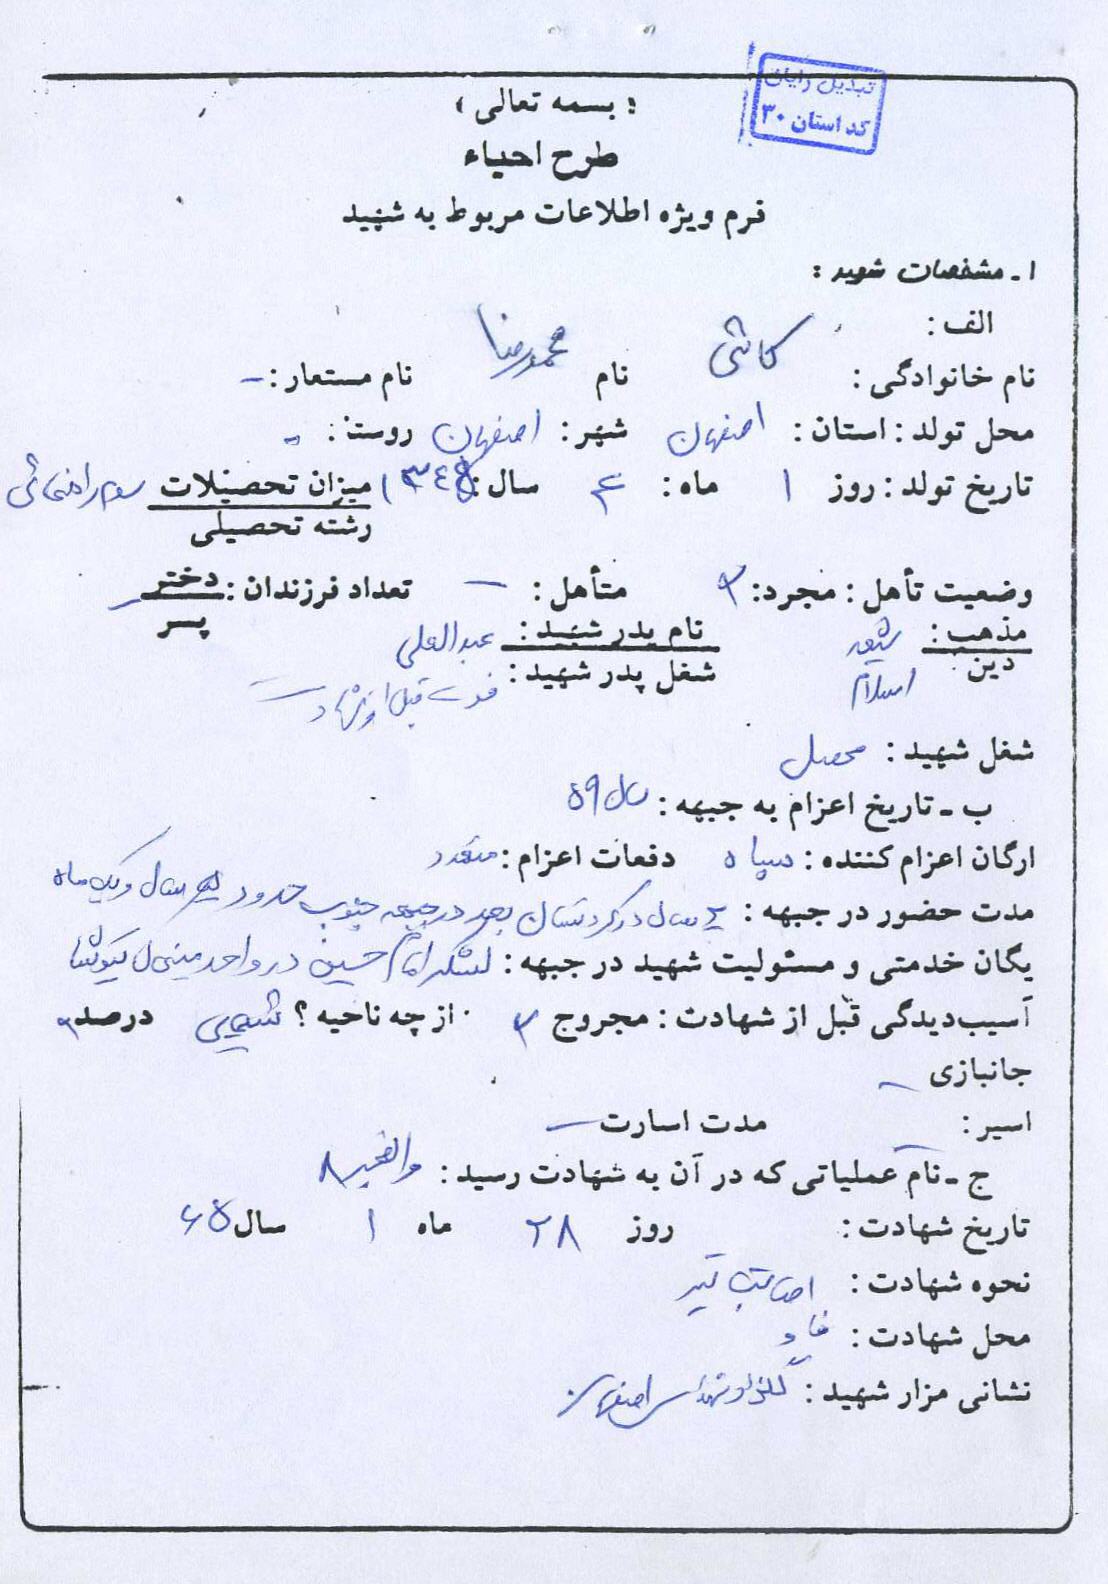 تبدیل رایان
کد استان ۳۰
« بسمه تعالی »
طرح احیاء
فرم ویژه اطلاعات مربوط به شهید
۱ـ مشخصات شهید :
الف :
نام خانوادگی : کاشی نام محمدرضا نام مستعار : –
محل تولد : استان : اصفهان شهر : اصفهان روستا : -
تاریخ تولد : روز ۱ ماه : ۴ سال : میزان تحصیلات سوم راهنمائی
رشته تحصیلی
وضعیت تأهل : مجرد : متأهل : – تعداد فرزندان : دختر –
پسر
مذهب : شیعه نام پدر شهید : عبدالعلی
دین : اسلام شغل پدر شهید : فوت قبل از شهادت
شغل شهید : محصل
ب ـ تاریخ اعزام به جبهه : سال ۵۹
ارگان اعزام کننده : سپاه دفعات اعزام : متعدد
مدت حضور در جبهه : ۲ سال در کردستان بعد در جبهه جنوب حدود سال و یک ماه
یگان خدمتی و مسئولیت شهید در جبهه : لشکر امام حسین در واحد
آسیب‌دیدگی قبل از شهادت : مجروح از چه ناحیه ؟ شیمیایی درصد
جانبازی –
اسیر : – مدت اسارت –
ج ـ نام عملیاتی که در آن به شهادت رسید : والفجر ۸
تاریخ شهادت : روز ۲۸ ماه ۱ سال ۶۵
نحوه شهادت : اصابت تیر
محل شهادت : فاو
نشانی مزار شهید : گلزار شهدای اصفهان